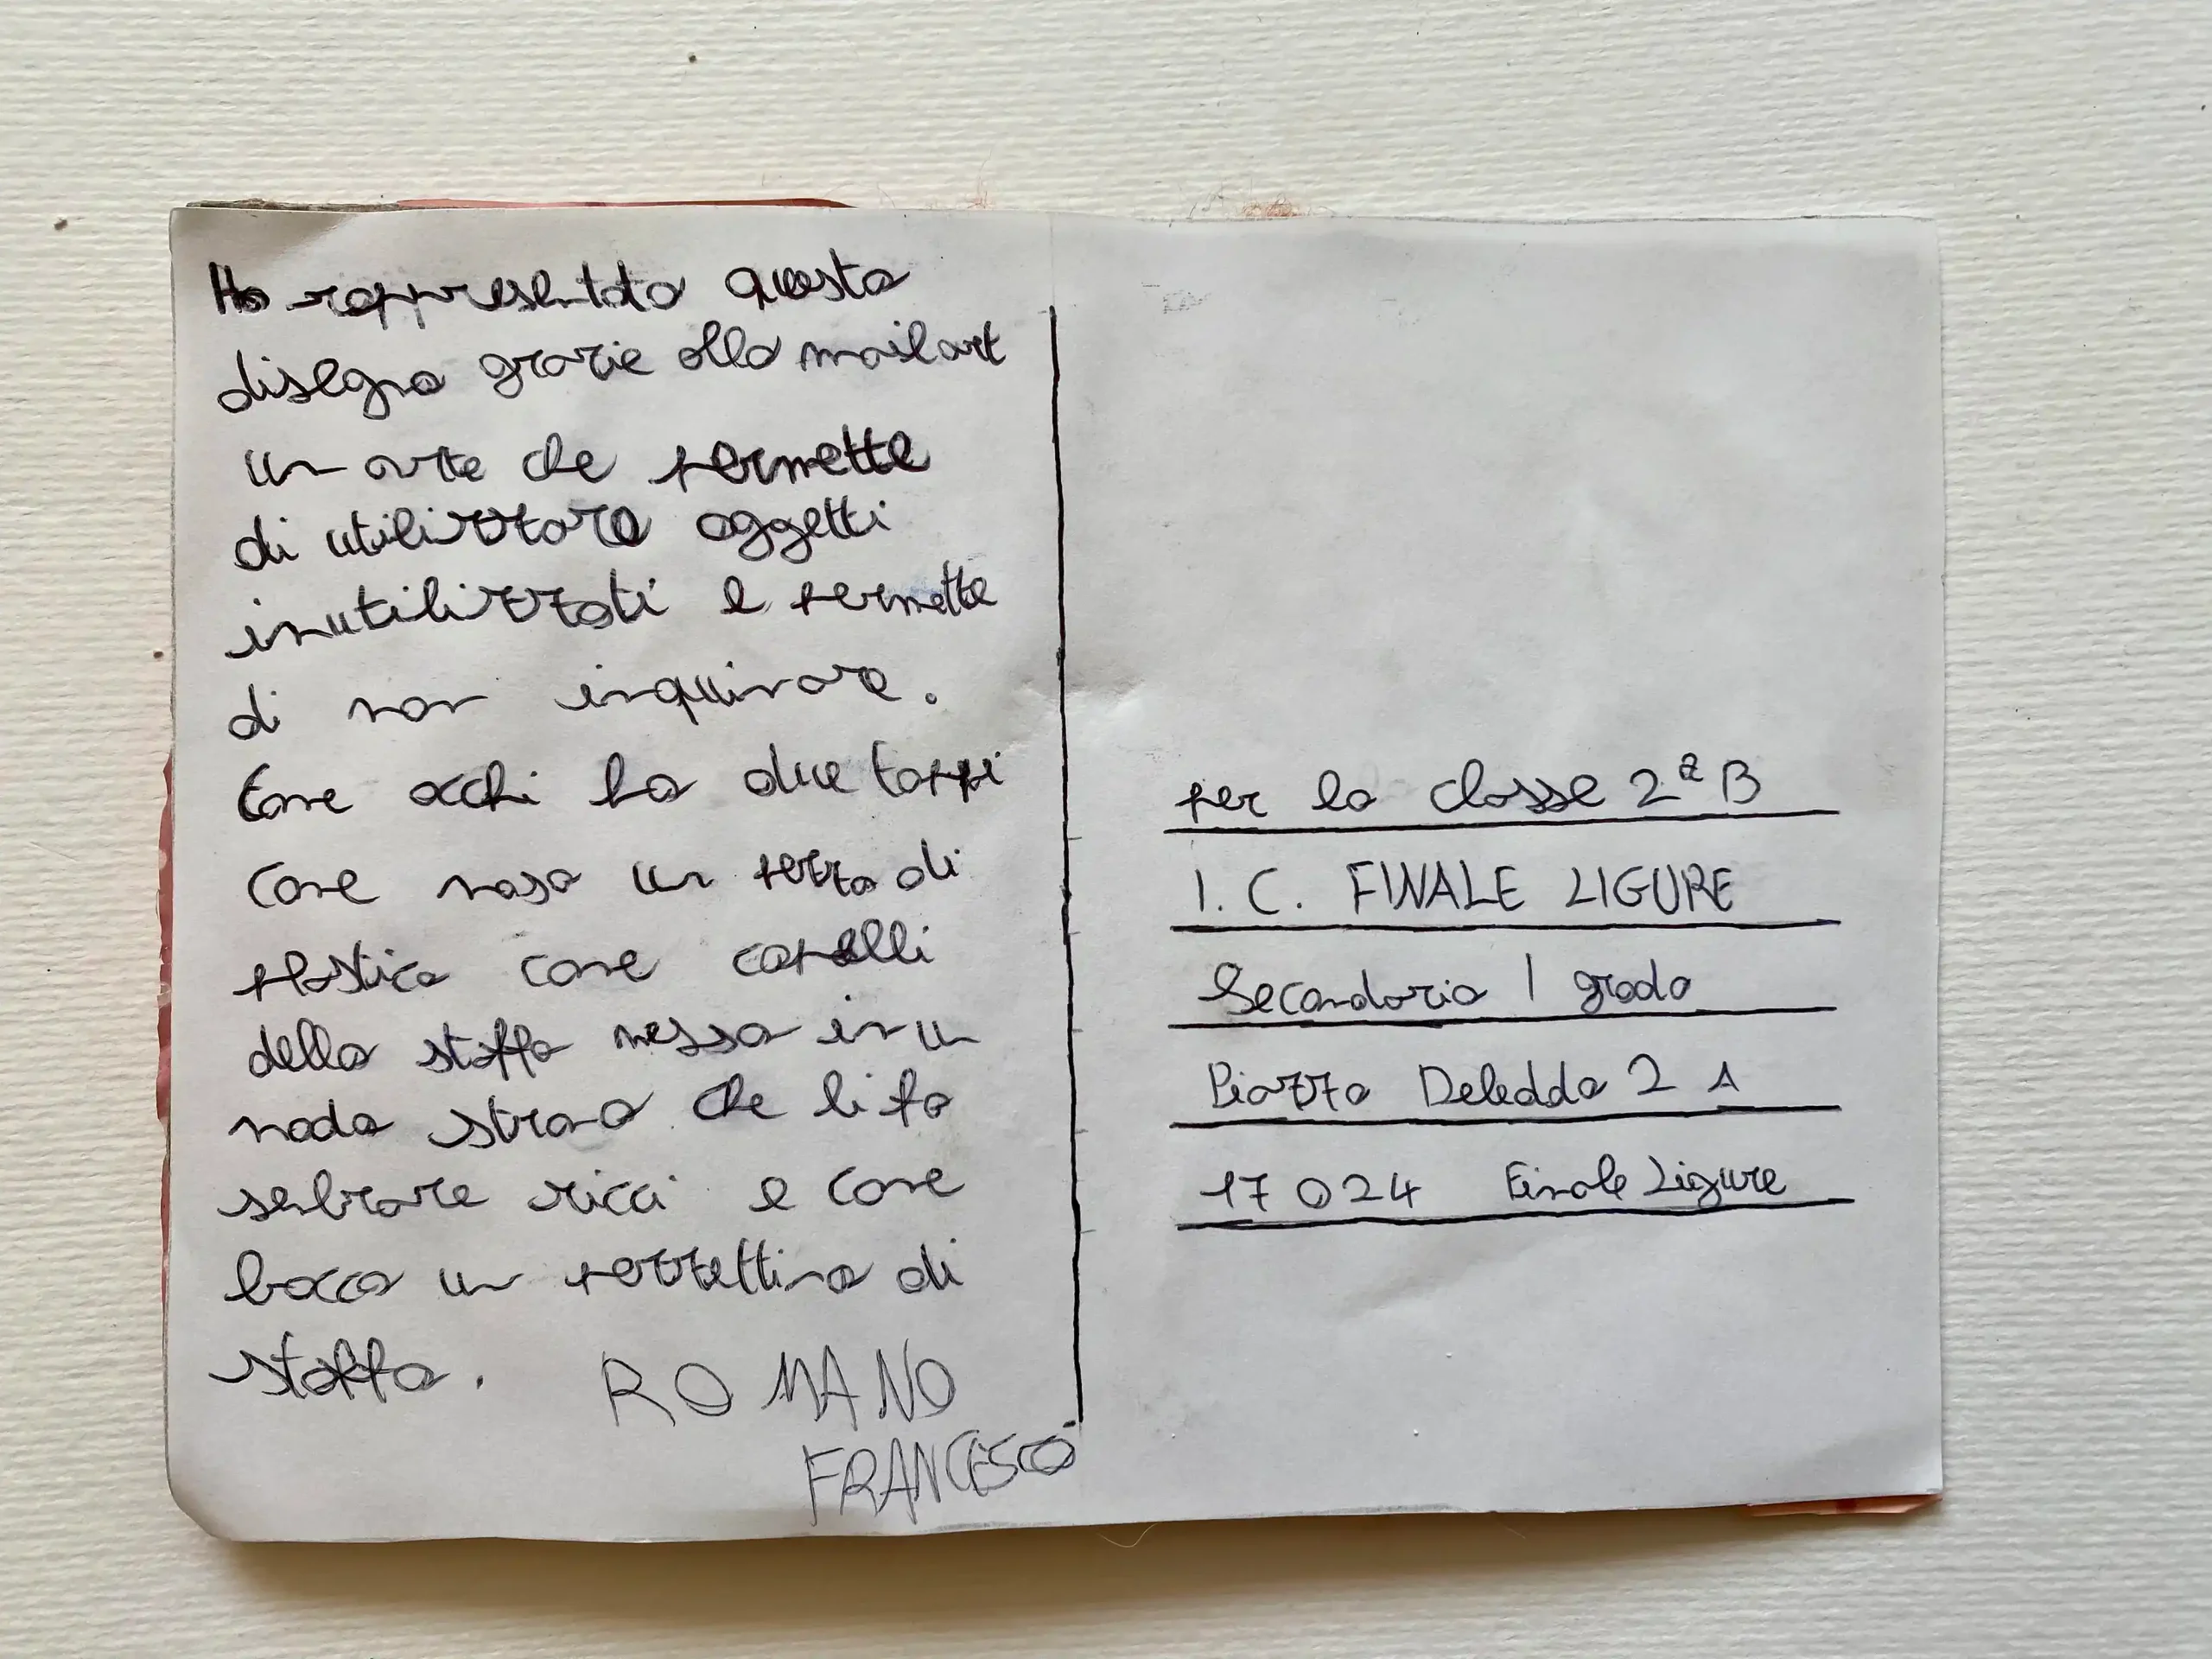 Ho rappresentato questo
disegno grazie alla mailart
un arte che permette
di utilizzare oggetti
inutilizzati e permette
di non inquinare.
Come occhi ha due tappi
come naso un pezzo di
plastica come capelli
della stoffa messa in un
modo strano che li fa
sembrare ricci e come
bocca un pezzettino di
stoffa.
ROMANO
FRANCESCO
per la classe 2ª B
I.C. FINALE LIGURE
Secondaria I grado
Piazza Deledda 2 A
17024 Finale Ligure